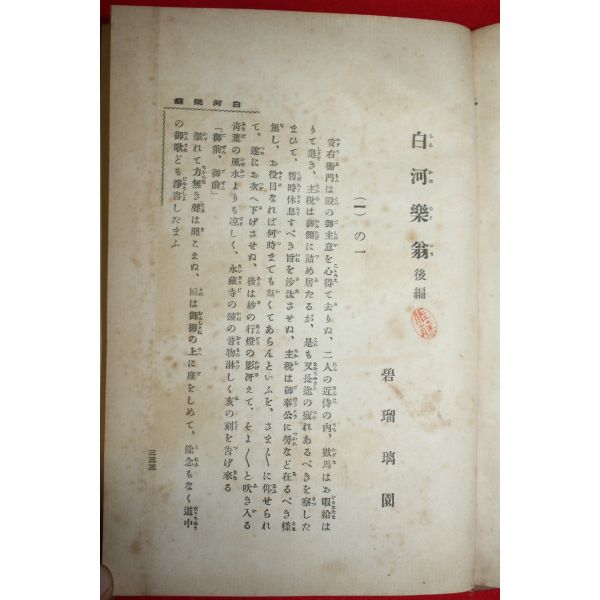 白河樂翁 後編
碧瑠璃園
(一) の一
安右衞門は殿の御主意を心得て去りぬ、二人の近侍の内、數馬はお暇給は
りて退き、主税は御側に詰め居たるが、是も又長途の疲れあるべきを察した
まひて、暫時休息すべき旨を沙汰させぬ、主税は御奉公に勞など在るべき樣
無し、お役目なれば何時までも斯くてあらんといふを、さま〴〵に仰せられ
て、遂にお次へ下げさせぬ、後は紗の行燈の影冴えて、そよ〳〵と吹き入る
青葉の風水よりも凉しく、永藏寺の鐘の音物淋しく亥の刻を告げ來る
「御前、御前」
傲れて力無き聲は聞こえぬ、殿は御褥の上に座をしめて、餘念もなく道中
の御歌ども淨書したまふ
白河樂翁
三三三